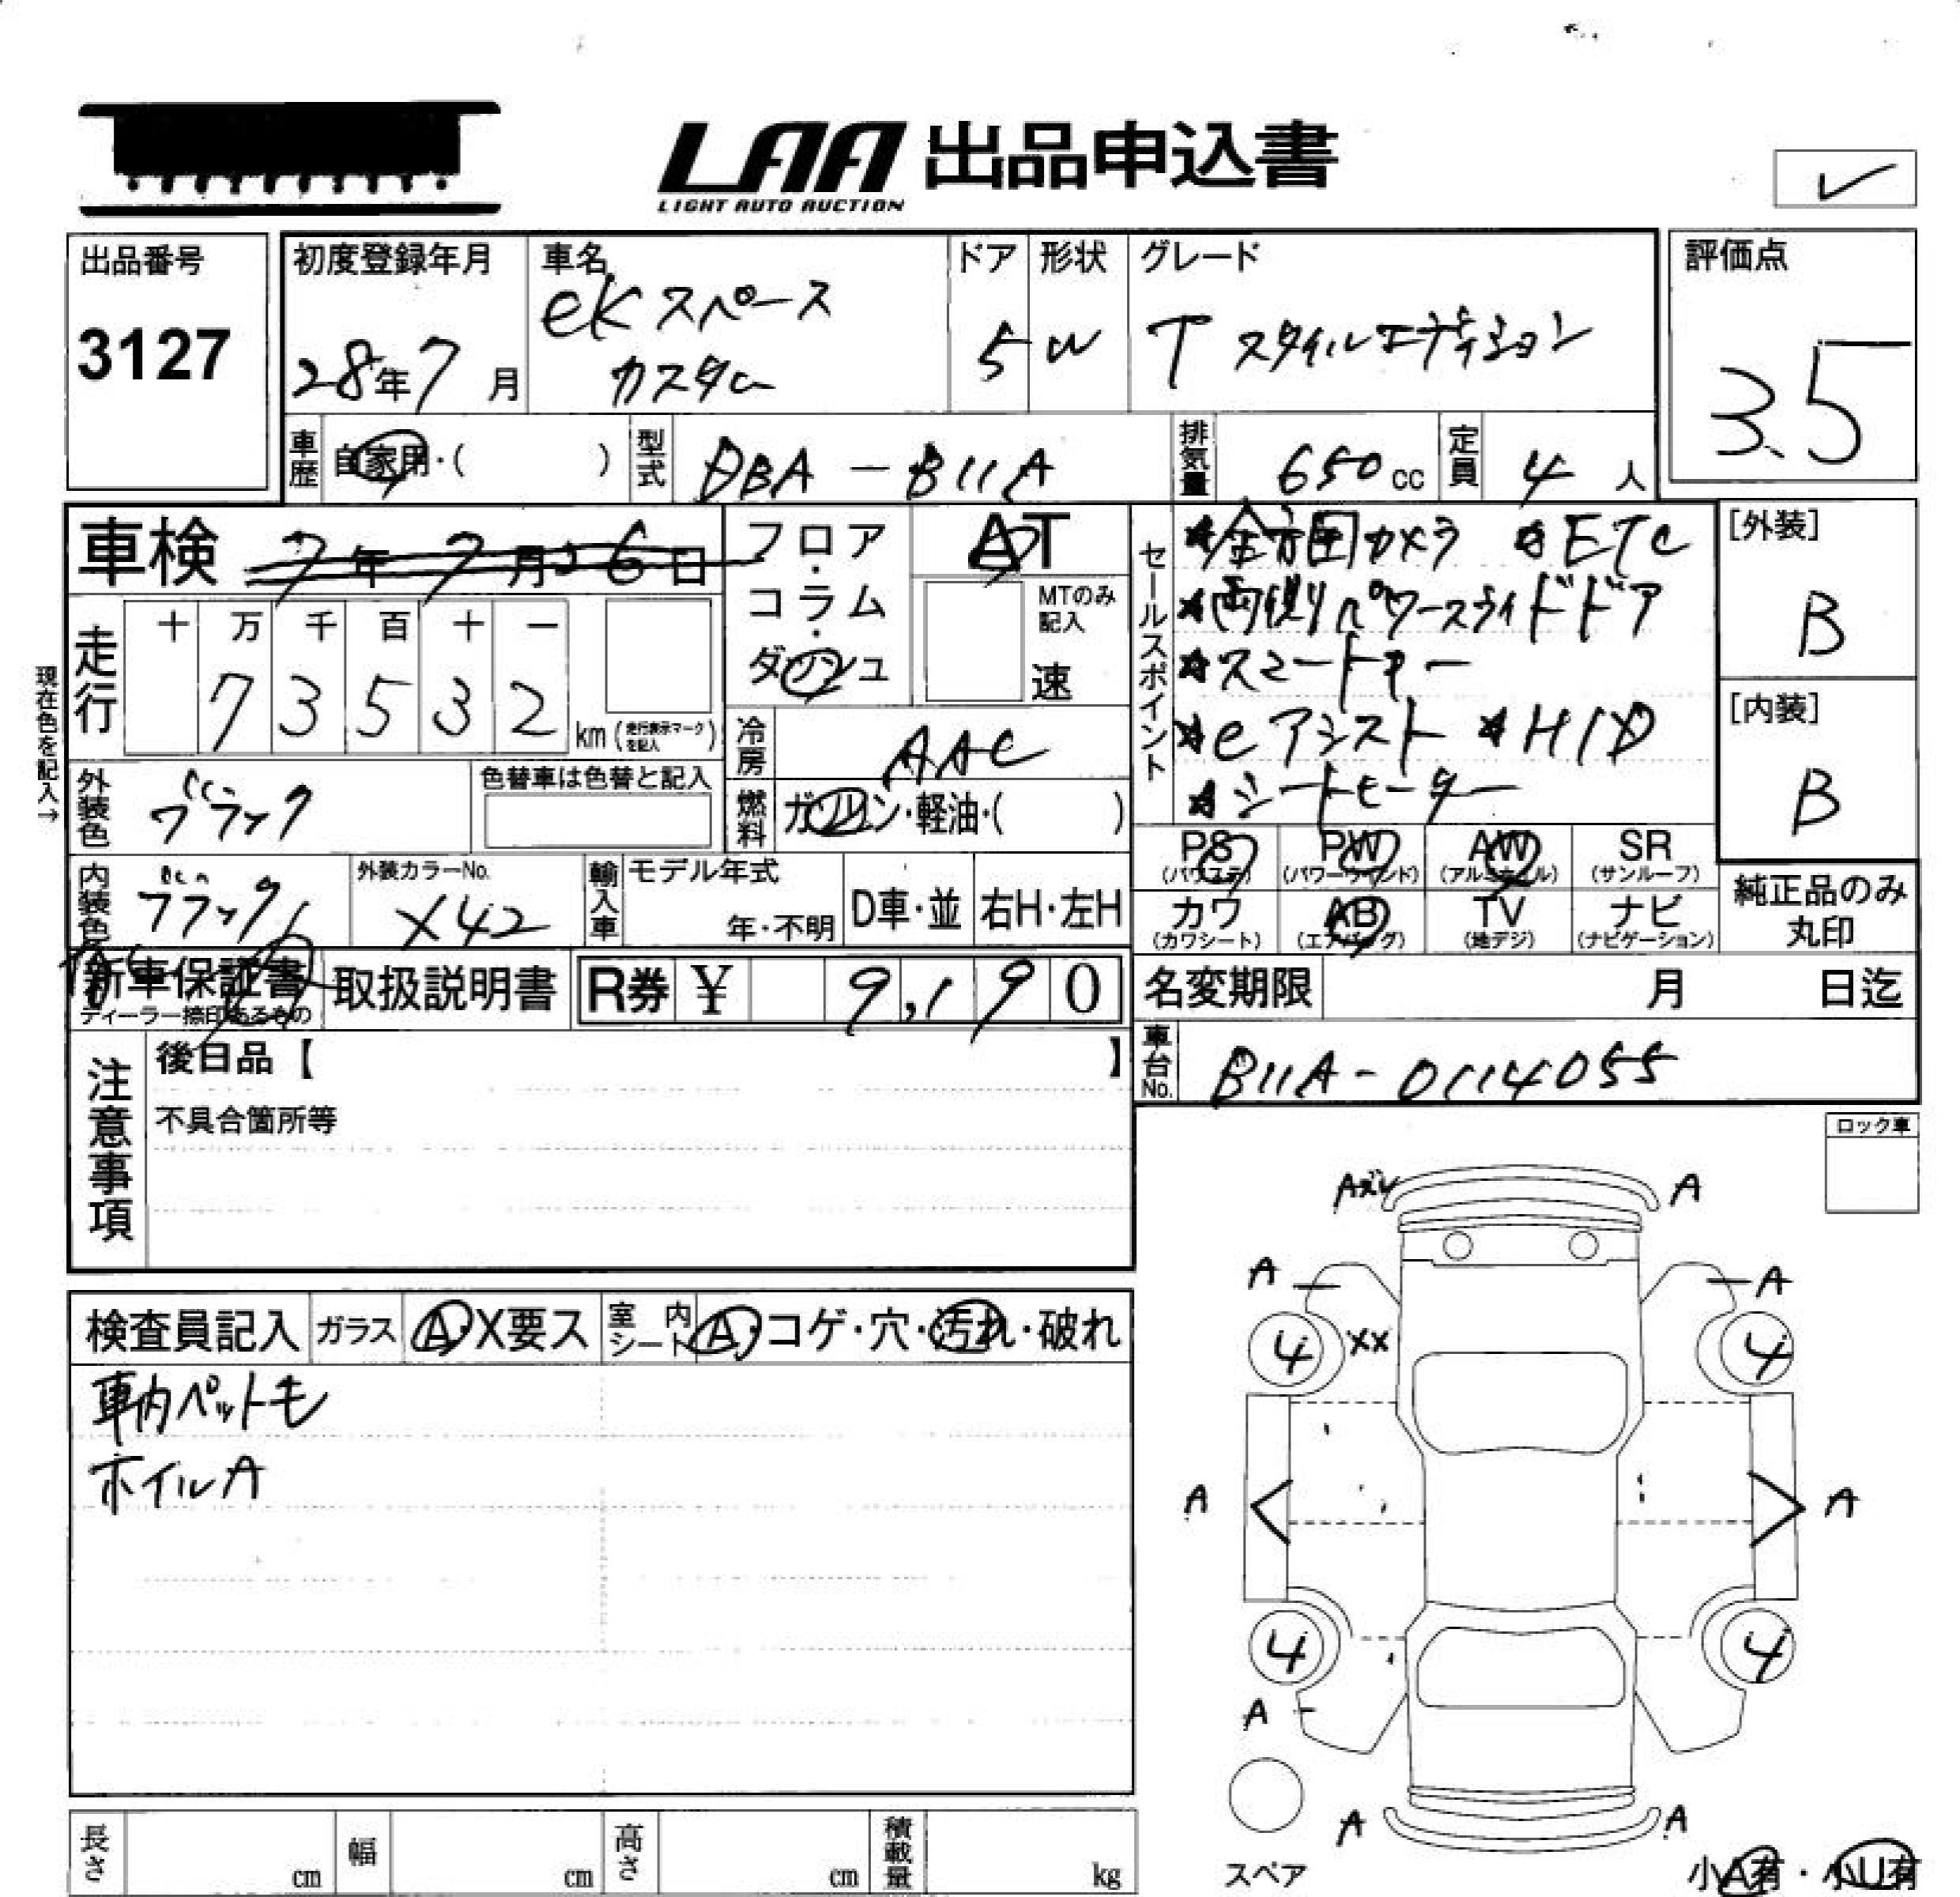 LAA 出品申込書
LIGHT AUTO AUCTION
✓
出品番号
3127
初度登録年月
28年7月
車名
eKスペース
カスタム
ドア
5
形状
W
グレード
T スタイルエディション
評価点
3.5
車歴
自家用・( )
型式
DBA-B11A
排気量
650cc
定員
4人
車検 7年7月26日
フロア・コラム・ダッシュ
AT
MTのみ記入
速
セールスポイント
★全方囲カメラ ★ETC
★両側パワースライドドア
★スマートキー
★eアシスト ★HID
★シートヒーター
[外装]
B
[内装]
B
現在色を記入→
走行
十 万 千 百 十 一
7 3 5 3 2
km(走行表示マークを記入)
冷房
AAC
燃料
ガソリン・軽油・( )
外装色
ブラック
色替車は色替と記入
内装色
ブラック
外装カラーNo.
X42
輸入車
モデル年式
年・不明
D車・並
右H・左H
PS
(パワステ)
PW
(パワーウインド)
AW
(アルミホイル)
SR
(サンルーフ)
カワ
(カワシート)
AB
(エアバッグ)
TV
(地デジ)
ナビ
(ナビゲーション)
純正品のみ
丸印
新車保証書
ディーラー捺印あるもの
取扱説明書
R券 ¥ 9,190
名変期限 月 日迄
車台No.
B11A-0114055
注意事項
後日品【 】
不具合箇所等
ロック車
検査員記入
ガラス
A・X要ス
室内シート
A・コゲ・穴・汚れ・破れ
車内ペットモ
ホイルA
Aズレ A
A A
4 XX 4
A A
4 4
A
A A
スペア
小A有・小U有
長さ cm
幅 cm
高さ cm
積載量 kg